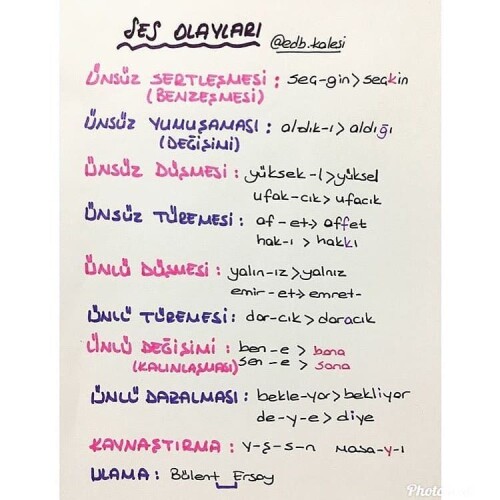 SES OLAYLARI @edb.kalesi
ÜNSÜZ SERTLEŞMESİ : seç-gin > seçkin
(BENZEŞMESİ)
ÜNSÜZ YUMUŞAMASI : aldık-ı > aldığı
(DEĞİŞİMİ)
ÜNSÜZ DÜŞMESİ : yüksek-l > yüksel
ufak-cık > ufacık
ÜNSÜZ TÜREMESİ : af-et > affet
hak-ı > hakkı
ÜNLÜ DÜŞMESİ : yalın-ız > yalnız
emir-et > emret-
ÜNLÜ TÜREMESİ : dar-cık > daracık
ÜNLÜ DEĞİŞİMİ : ben-e > bana
(KALINLAŞMASI) sen-e > sana
ÜNLÜ DARALMASI : bekle-yor > bekliyor
de-y-e > diye
KAYNAŞTIRMA : y-ş-s-n masa-y-ı
ULAMA : Bülent Ersoy